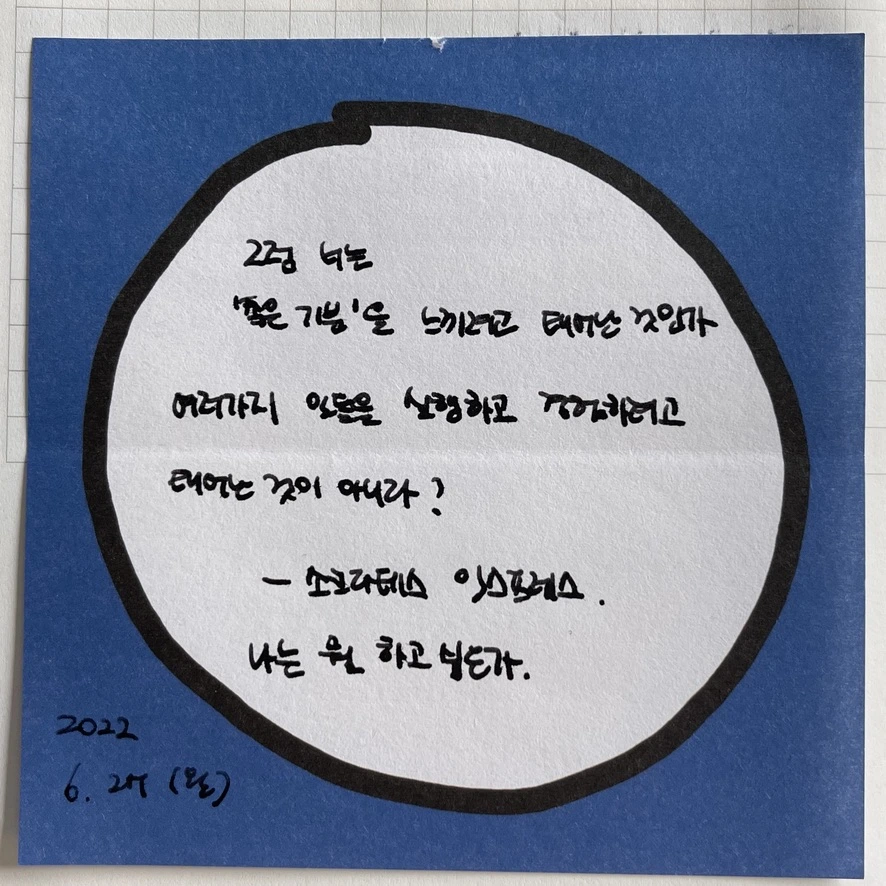 그럼 너는
'좋은 기분'을 느끼려고 태어난 것인가
여러가지 일들을 실행하고 경험하려고
태어난 것이 아니라?
- 소크라테스 익스프레스.
나는 뭘 하고 싶은가.
2022
6. 27 (월)